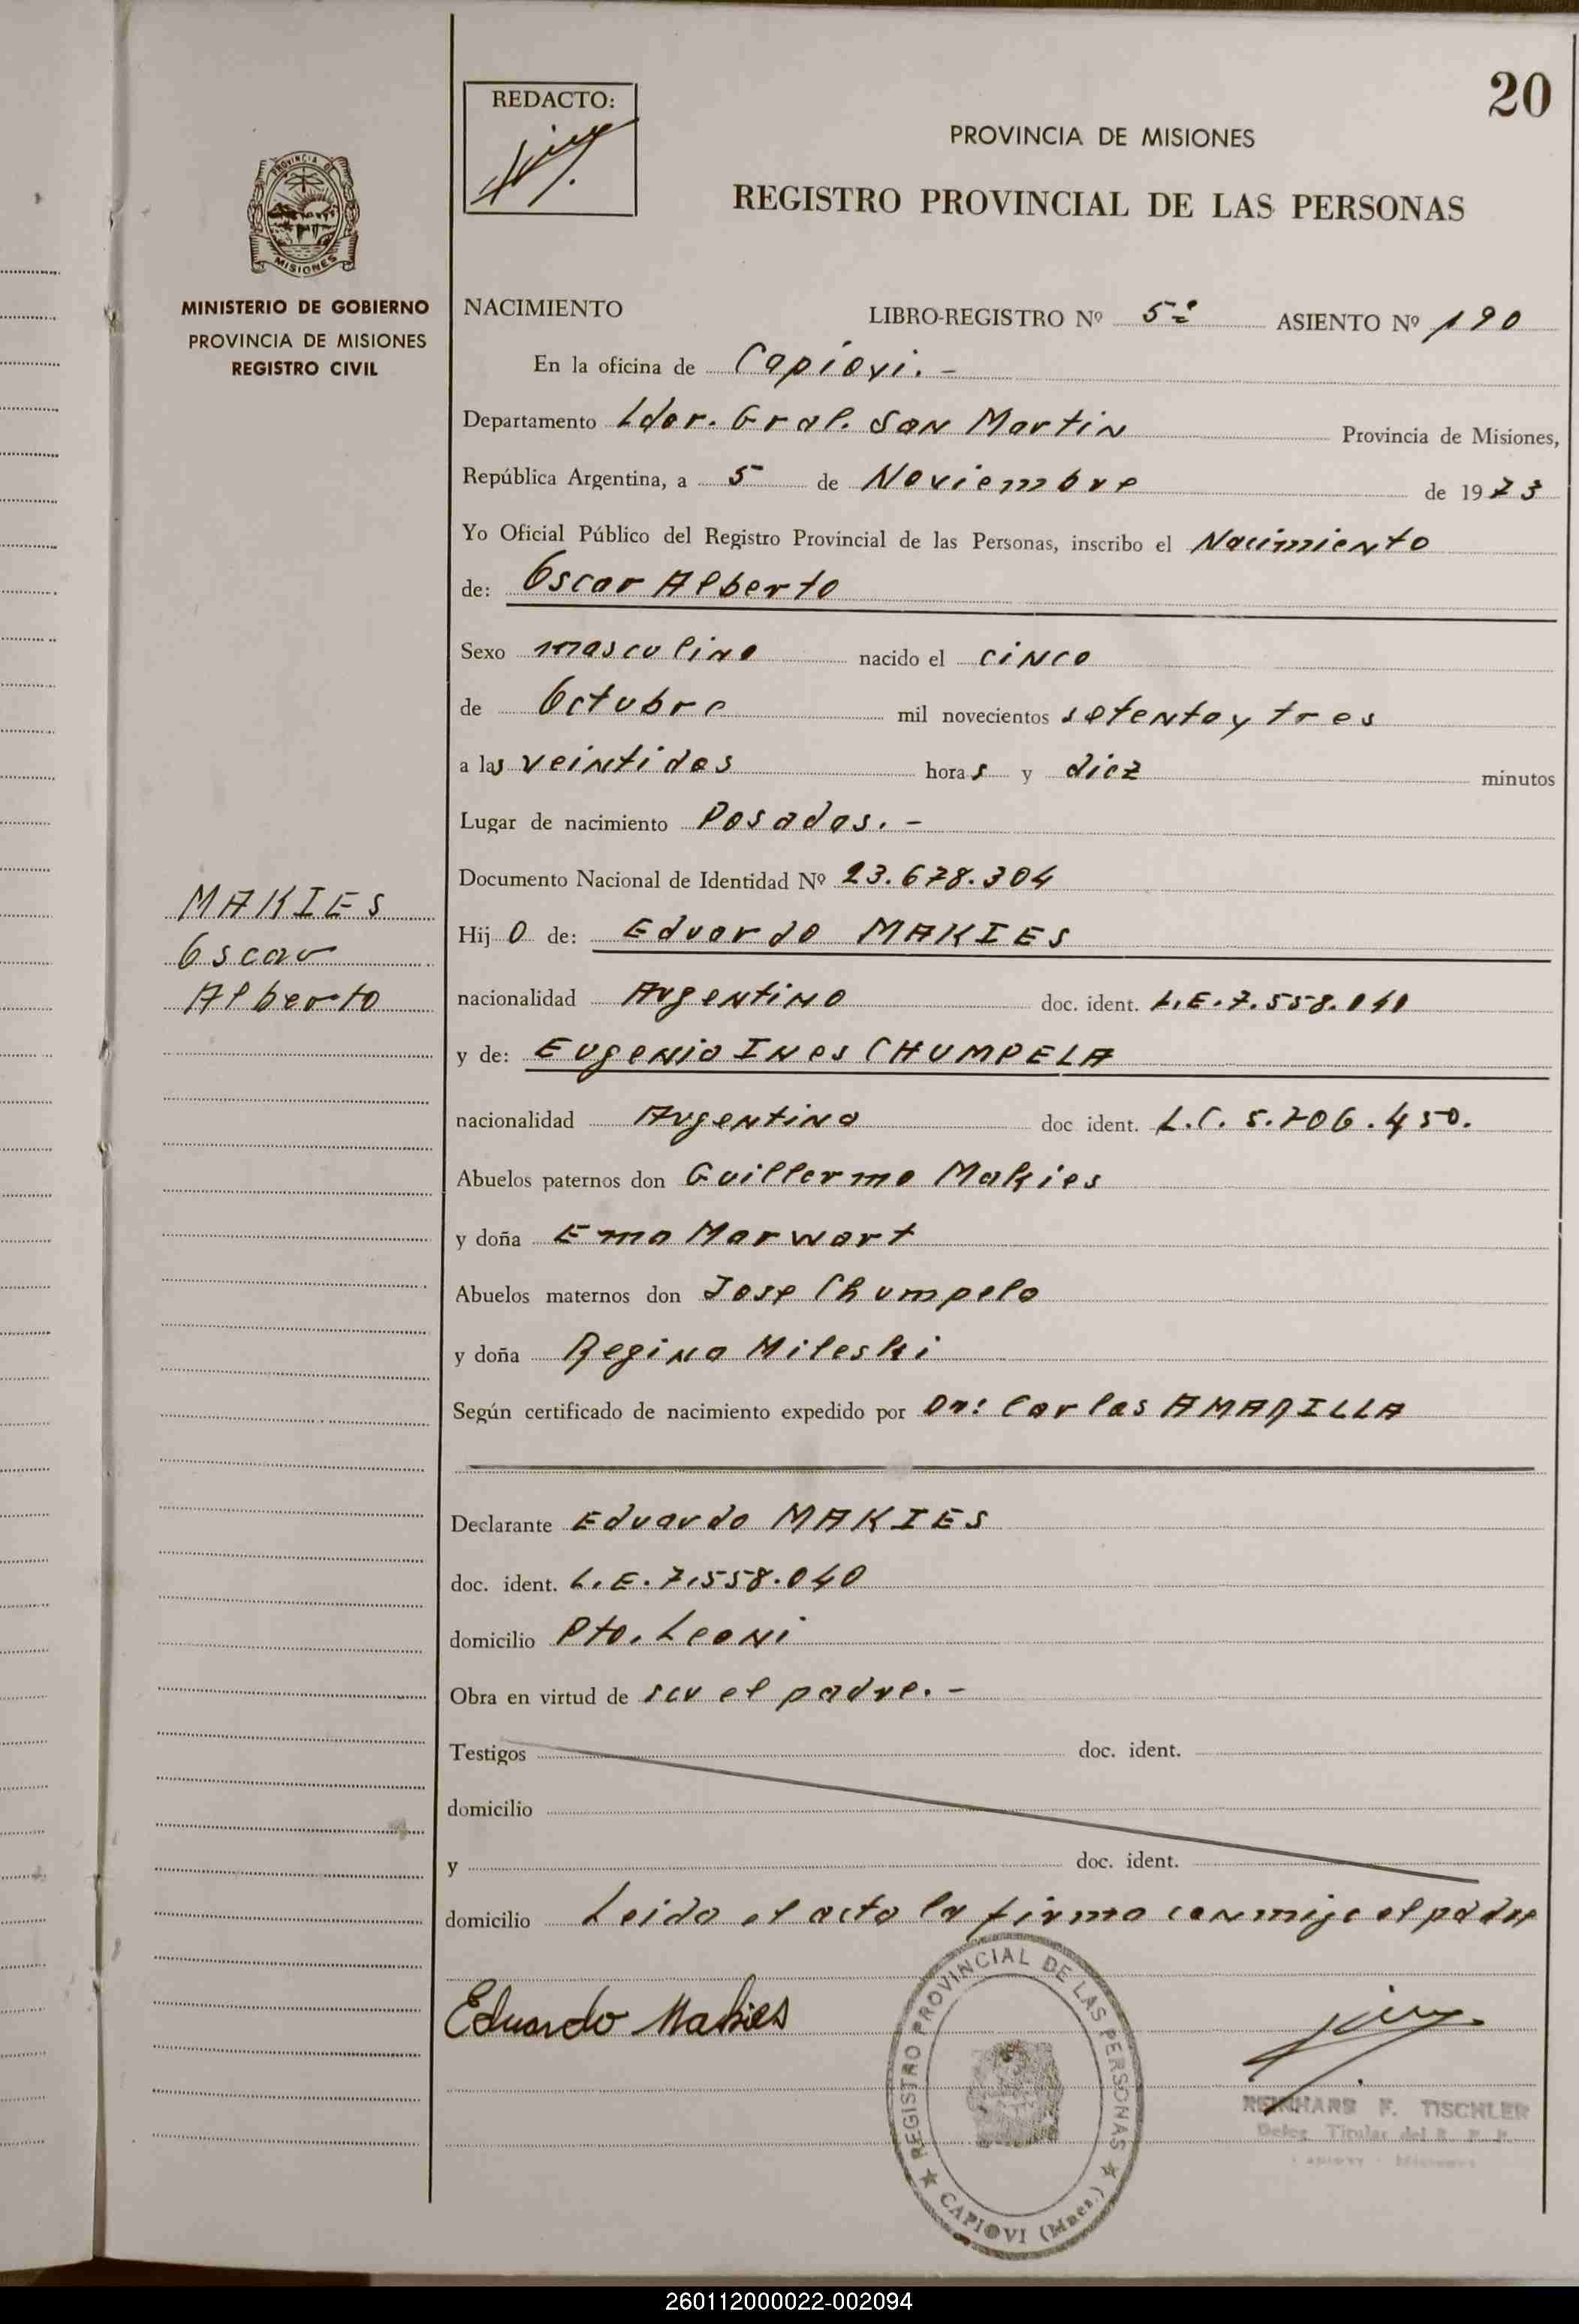 20
REDACTO:
PROVINCIA DE MISIONES
REGISTRO PROVINCIAL DE LAS PERSONAS
PROVINCIA DE
MISIONES
MINISTERIO DE GOBIERNO
PROVINCIA DE MISIONES
REGISTRO CIVIL
NACIMIENTO LIBRO-REGISTRO Nº 5º ASIENTO Nº 190
En la oficina de Capiovi. -
Departamento Ldor. Gral. San Martin Provincia de Misiones,
República Argentina, a 5 de Noviembre de 1973
Yo Oficial Público del Registro Provincial de las Personas, inscribo el Nacimiento
de: Oscar Alberto
Sexo masculino nacido el cinco
de Octubre mil novecientos setenta y tres
a las veintidos horas y diez minutos
Lugar de nacimiento Posadas. -
Documento Nacional de Identidad Nº 23.678.304
MAKIES
Oscar
Alberto
Hijo de: Eduardo MAKIES
nacionalidad Argentino doc. ident. L.E. 7.558.040
y de: Eugenia Ines CHUMPELA
nacionalidad Argentina doc ident. L.C. 5.706.450.
Abuelos paternos don Guillermo Makies
y doña Ema Marwart
Abuelos maternos don Jose Chumpela
y doña Regina Mileski
Según certificado de nacimiento expedido por Dr: Carlos AMARILLA
Declarante Eduardo MAKIES
doc. ident. L.E. 7.558.040
domicilio Pto. Leoni
Obra en virtud de ser el padre. -
Testigos doc. ident.
domicilio
y doc. ident.
domicilio Leida el acta la firma conmigo el padre
Eduardo Makies
REGISTRO PROVINCIAL DE LAS PERSONAS
CAPIOVI (Mnes.)
REINHARD F. TISCHLER
Deleg. Titular del R. P. P.
Capiovi - Misiones
260112000022-002094